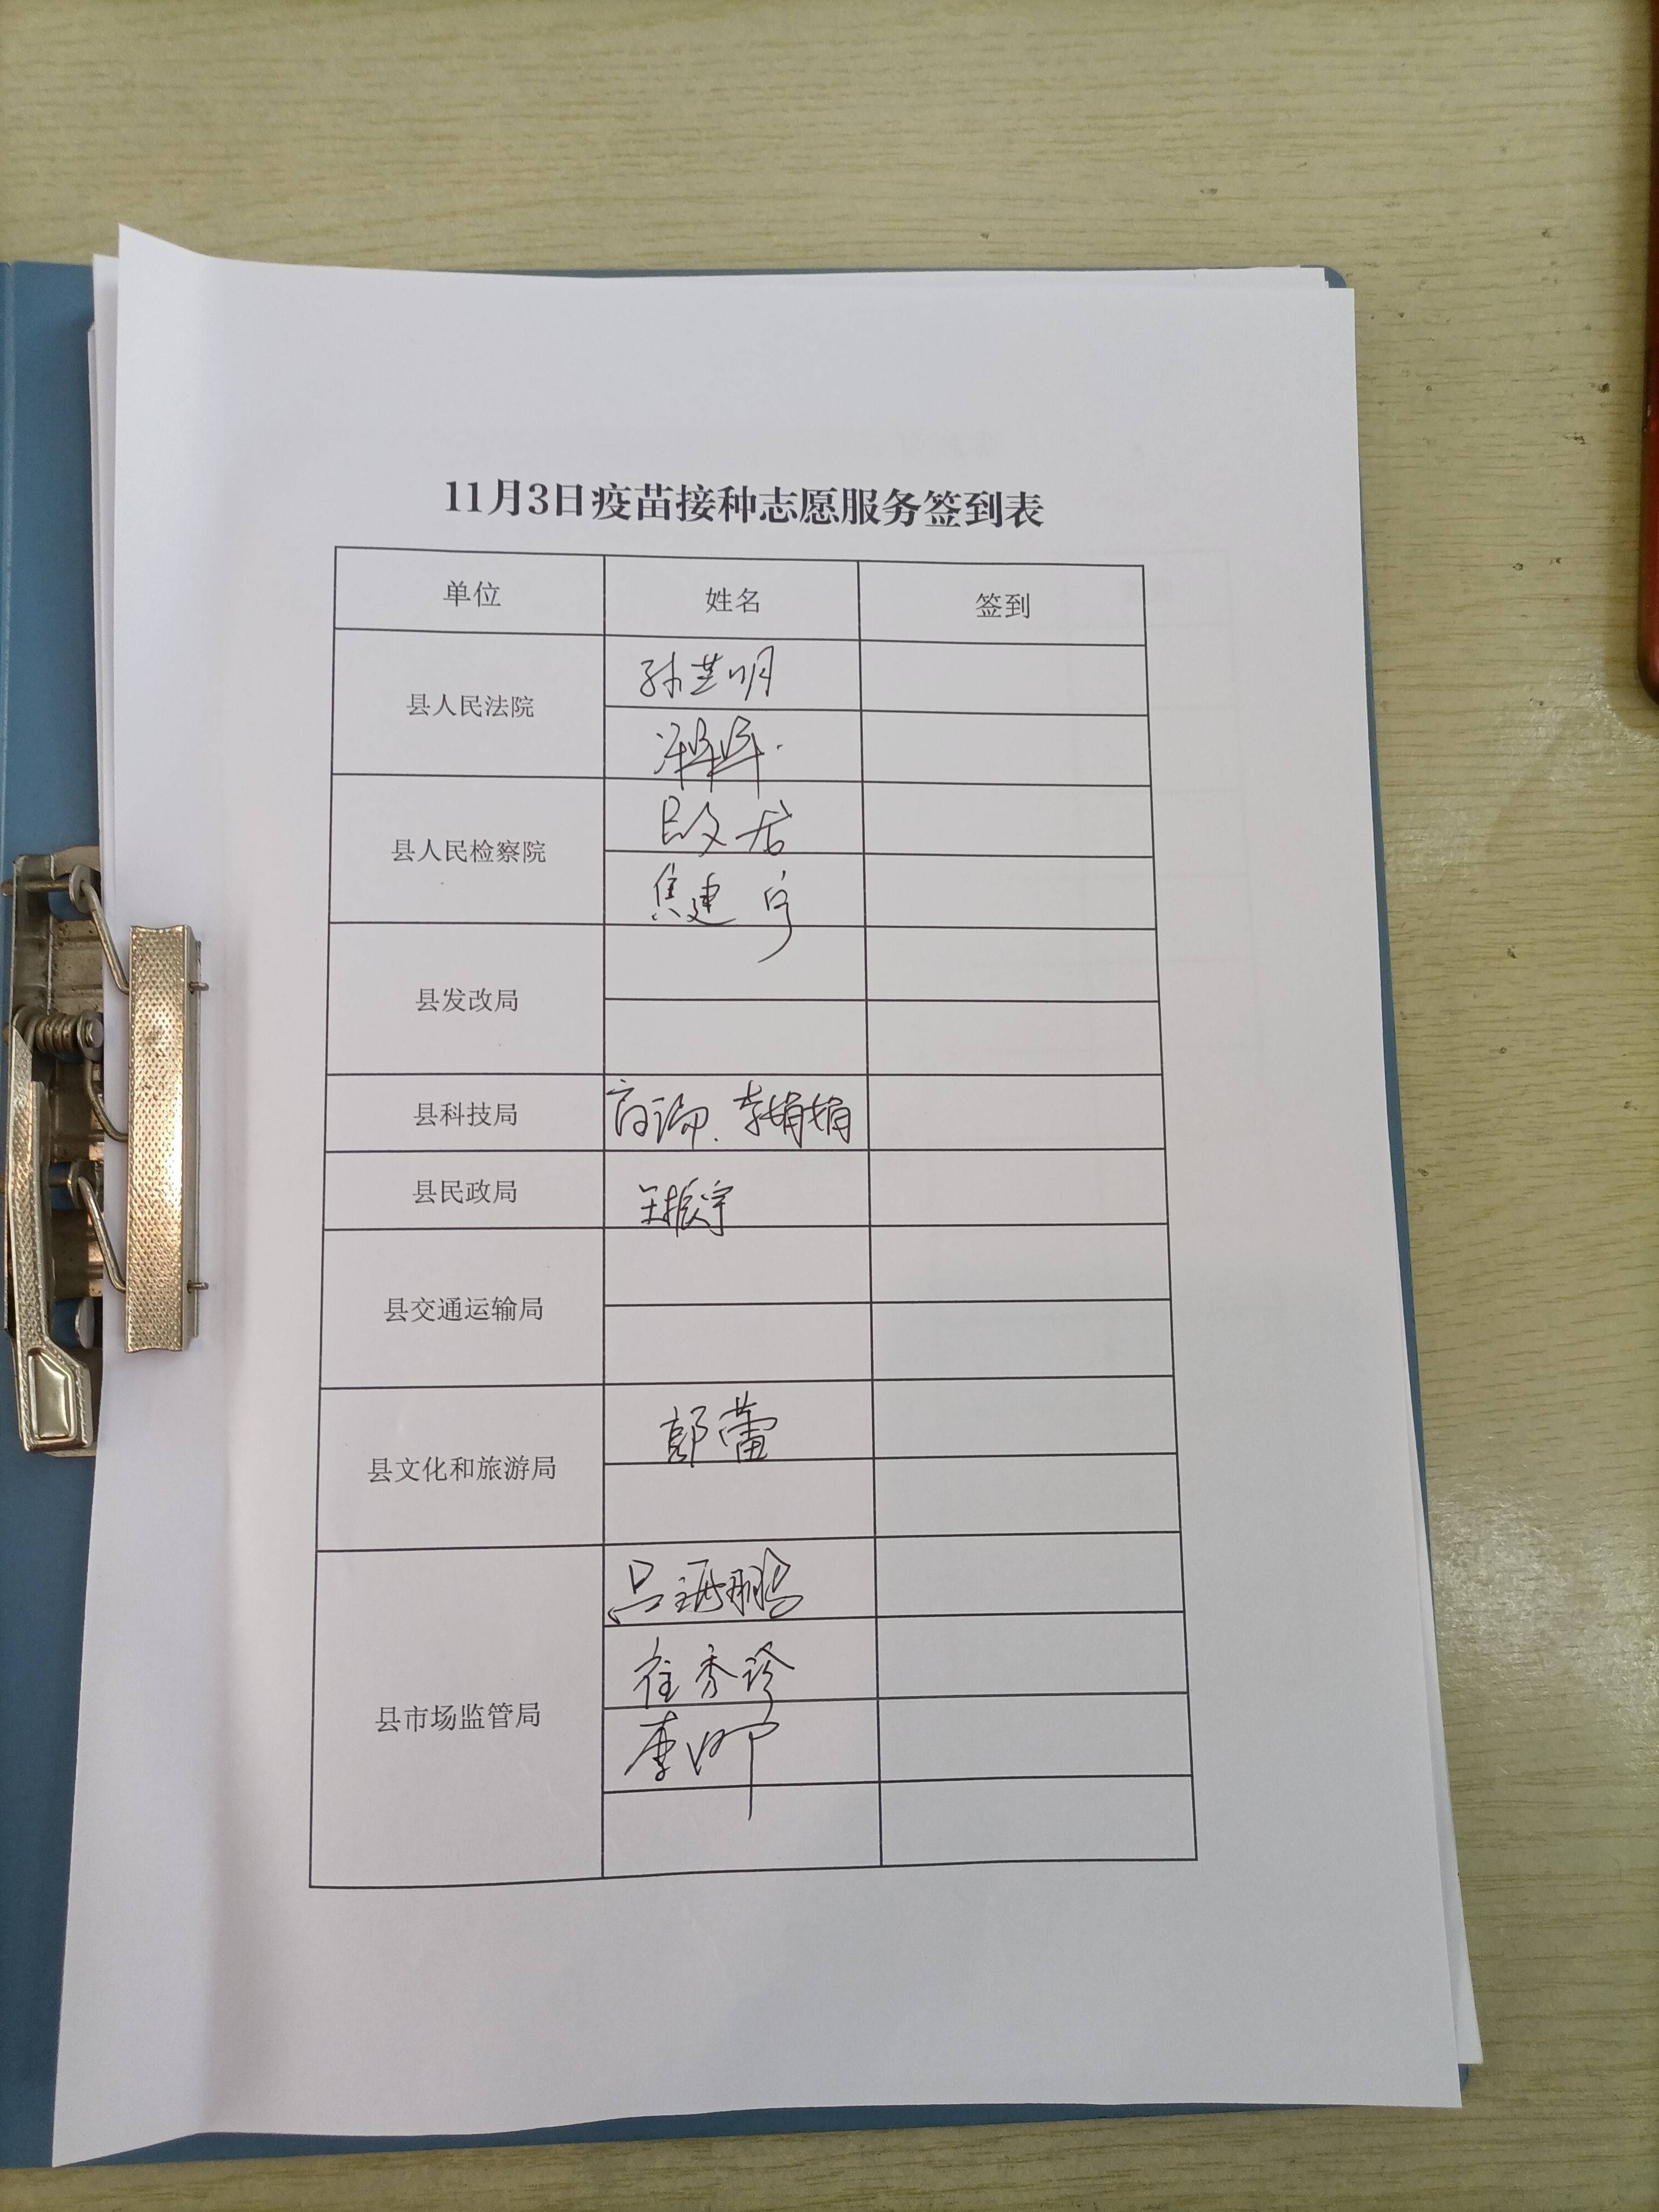 11月3日疫苗接种志愿服务签到表
单位 姓名 签到
县人民法院
孙芝明
县人民检察院
焦建
县发改局
县科技局 李娟娟
县民政局 王振宇
县交通运输局
县文化和旅游局
郭蕾
县市场监管局
吕 鹏
崔秀珍
李